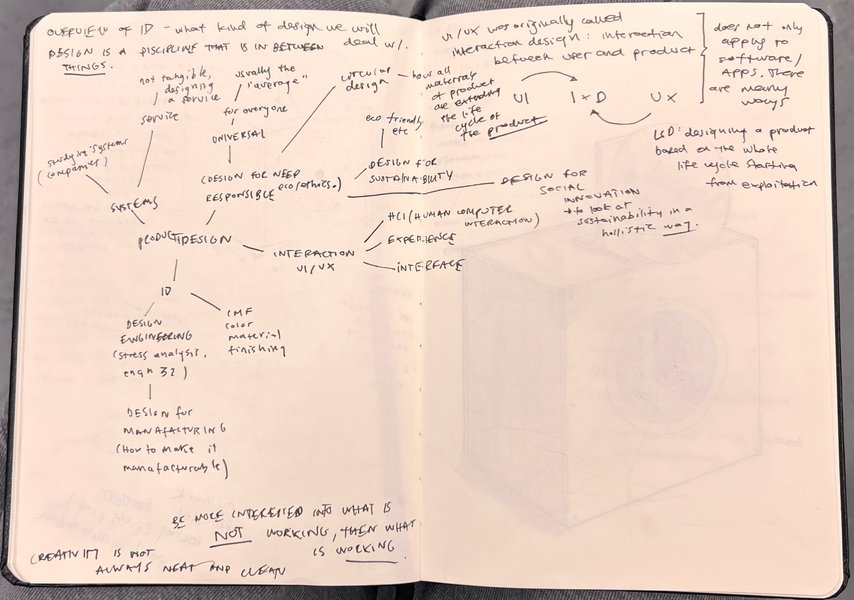 OVERVIEW OF ID - what kind of design we will
deal w/.
DESIGN IS A DISCIPLINE THAT IS IN BETWEEN
THINGS.
not tangible,
designing
a service
service
usually the
"average"
for everyone
UNIVERSAL
circular
design
how all
materials
of product
are extending
the life
cycle of
the product
eco friendly
etc
DESIGN FOR
SUSTAINABILITY
studying systems
(companies)
SYSTEMS
(DESIGN FOR NEED
RESPONSIBLE eco/ethics.)
DESIGN FOR
SOCIAL
INNOVATION
to look at
sustainability in a
hollistic way.
PRODUCT DESIGN
INTERACTION
UI/UX
HCI (HUMAN COMPUTER
INTERACTION)
EXPERIENCE
INTERFACE
ID
DESIGN
ENGINEERING
(stress analysis,
engn 32)
CMF
color
material
finishing
DESIGN for
MANUFACTURING
(How to make it
manufacturable)
BE MORE INTERESTED INTO WHAT IS
NOT WORKING, THEN WHAT
IS WORKING.
CREATIVITY IS NOT
ALWAYS NEAT AND CLEAN
UI/UX was originally called
interaction design: interaction
between user and product
does not only
apply to
software/
APPS. There
are many
ways
UI IxD UX
: designing a product
based on the whole
life cycle starting
from exploitation